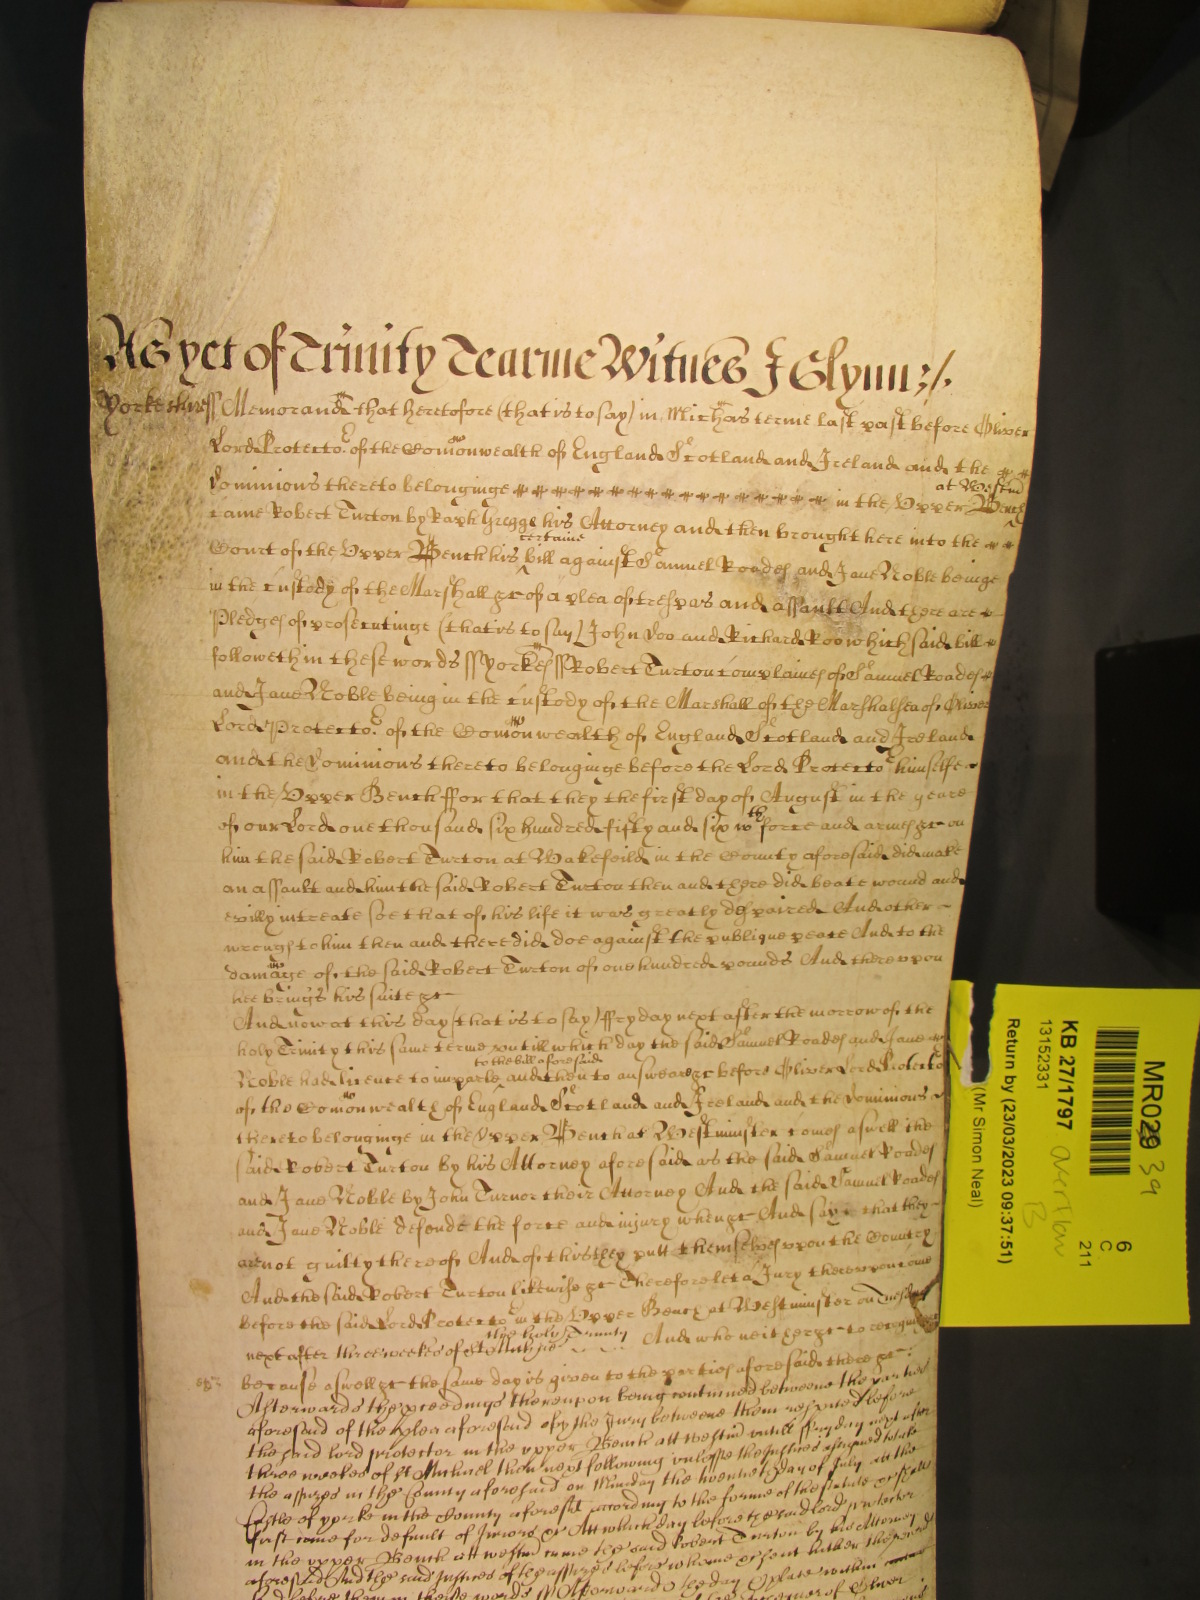 As yet of Trinity Tearme Witnes J Glynn
Yorkeshire ss Memorand that heretofore (that is to say) in Michas terme last past before Oliver
Lord Protector of the Comonwealth of England Scotland and Ireland and the
Dominions thereto belonginge at Westm in the Upper Bench
came Robert Turton by Raph Gregge his Attorney and then brought here into the
Court of the Upper Bench his certaine bill against Samuel Roades and Jane Noble beinge
in the custody of the Marshall &c of a plea of trespas and assault And there are
Pledges of prosecutinge (that is to say) John Doo and Richard Roo which said bill
followeth in these words ss Yorkes ss Robert Turton complaines of Samuel Roades
and Jane Noble being in the custody of the Marshall of the Marshalsea of Oliver
Lord Protector of the Comonwealth of England Scotland and Ireland
and the Dominions thereto belonginge before the Lord Protector himselfe
in the Upper Bench ffor that they the first day of August in the yeare
of our Lord one thousand six hundred fifty and six wth force and armes &c on
him the said Robert Turton at Wakefeild in the County aforesaid did make
an assault and him the said Robert Turton then and there did beate wound and
evilly intreate soe that of his life it was greatly despaired And other
wrongs to him then and there did doe against the publique peace And to the
damage of the said Robert Turton of one hundred pounds And thereupon
hee brings his suite &c
And now at this day (that is to say) ffryday next after the morrow of the
holy Trinity this same terme untill which day the said Samuel Roades and Jane
Noble had licence to imparle to the bill aforesaid and then to answeare &c before Oliver Lord Protector
of the Comonwealth of England Scotland and Ireland and the Dominions
thereto belonginge in the Upper Bench at Westminster comes aswell the
said Robert Turton by his Attorney aforesaid as the said Samuel Roades
and Jane Noble by John Turnor their Attorney And the said Samuel Roades
and Jane Noble defende the force and injury when &c And say that they
are not guilty thereof And of this they putt themselves upon the Country
And the said Robert Turton likewise &c Therefore let a Jury thereupon come
before the said Lord Protector in the Upper Bench at Westminster on
next after three weekes of the holy Trinity And who neither &c to recognize
because aswell &c the same day is given to the parties aforesaid there &c
Afterwards the proceedings thereupon being continued betweene the parties
aforesaid of the plea aforesaid by the Jury betweene them respited before
the said lord protector in the upper Bench att Westm untill ffryday next after
three weekes of St Michael then next following unlesse the Justices assigned to take
the assizes in the County aforesaid on Munday the twentieth day of July att the
Castle of yorke in the County aforesd according to the forme of the statute
first come for default of Jurors &c Att which day before the said lord protector
in the upper Bench att westm came the said Robert Turton by his Attorney
aforesaid And the said Justices of the assizes before whome &c sent hither their
had before them in these words ss Afterwards the day & place within
MR029 39
KB 27/1797 overflow B
13152331
Return by (23/03/2023 09:37:51)
(Mr Simon Neal)
6
C
211